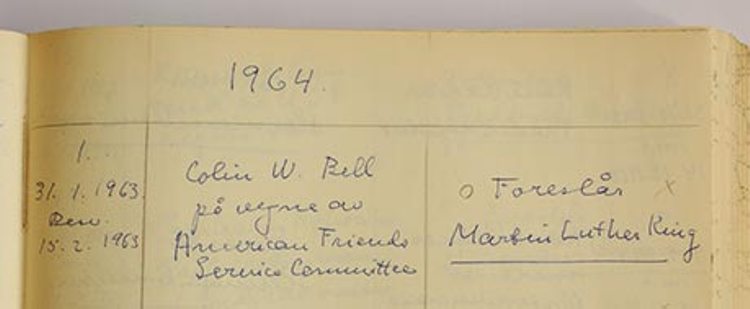 1964.
1.
31.1.1963.
Besv.
15.2.1963
Colin W. Bell
på vegne av
American Friends
Service Committee
o Foreslår x
Martin Luther King